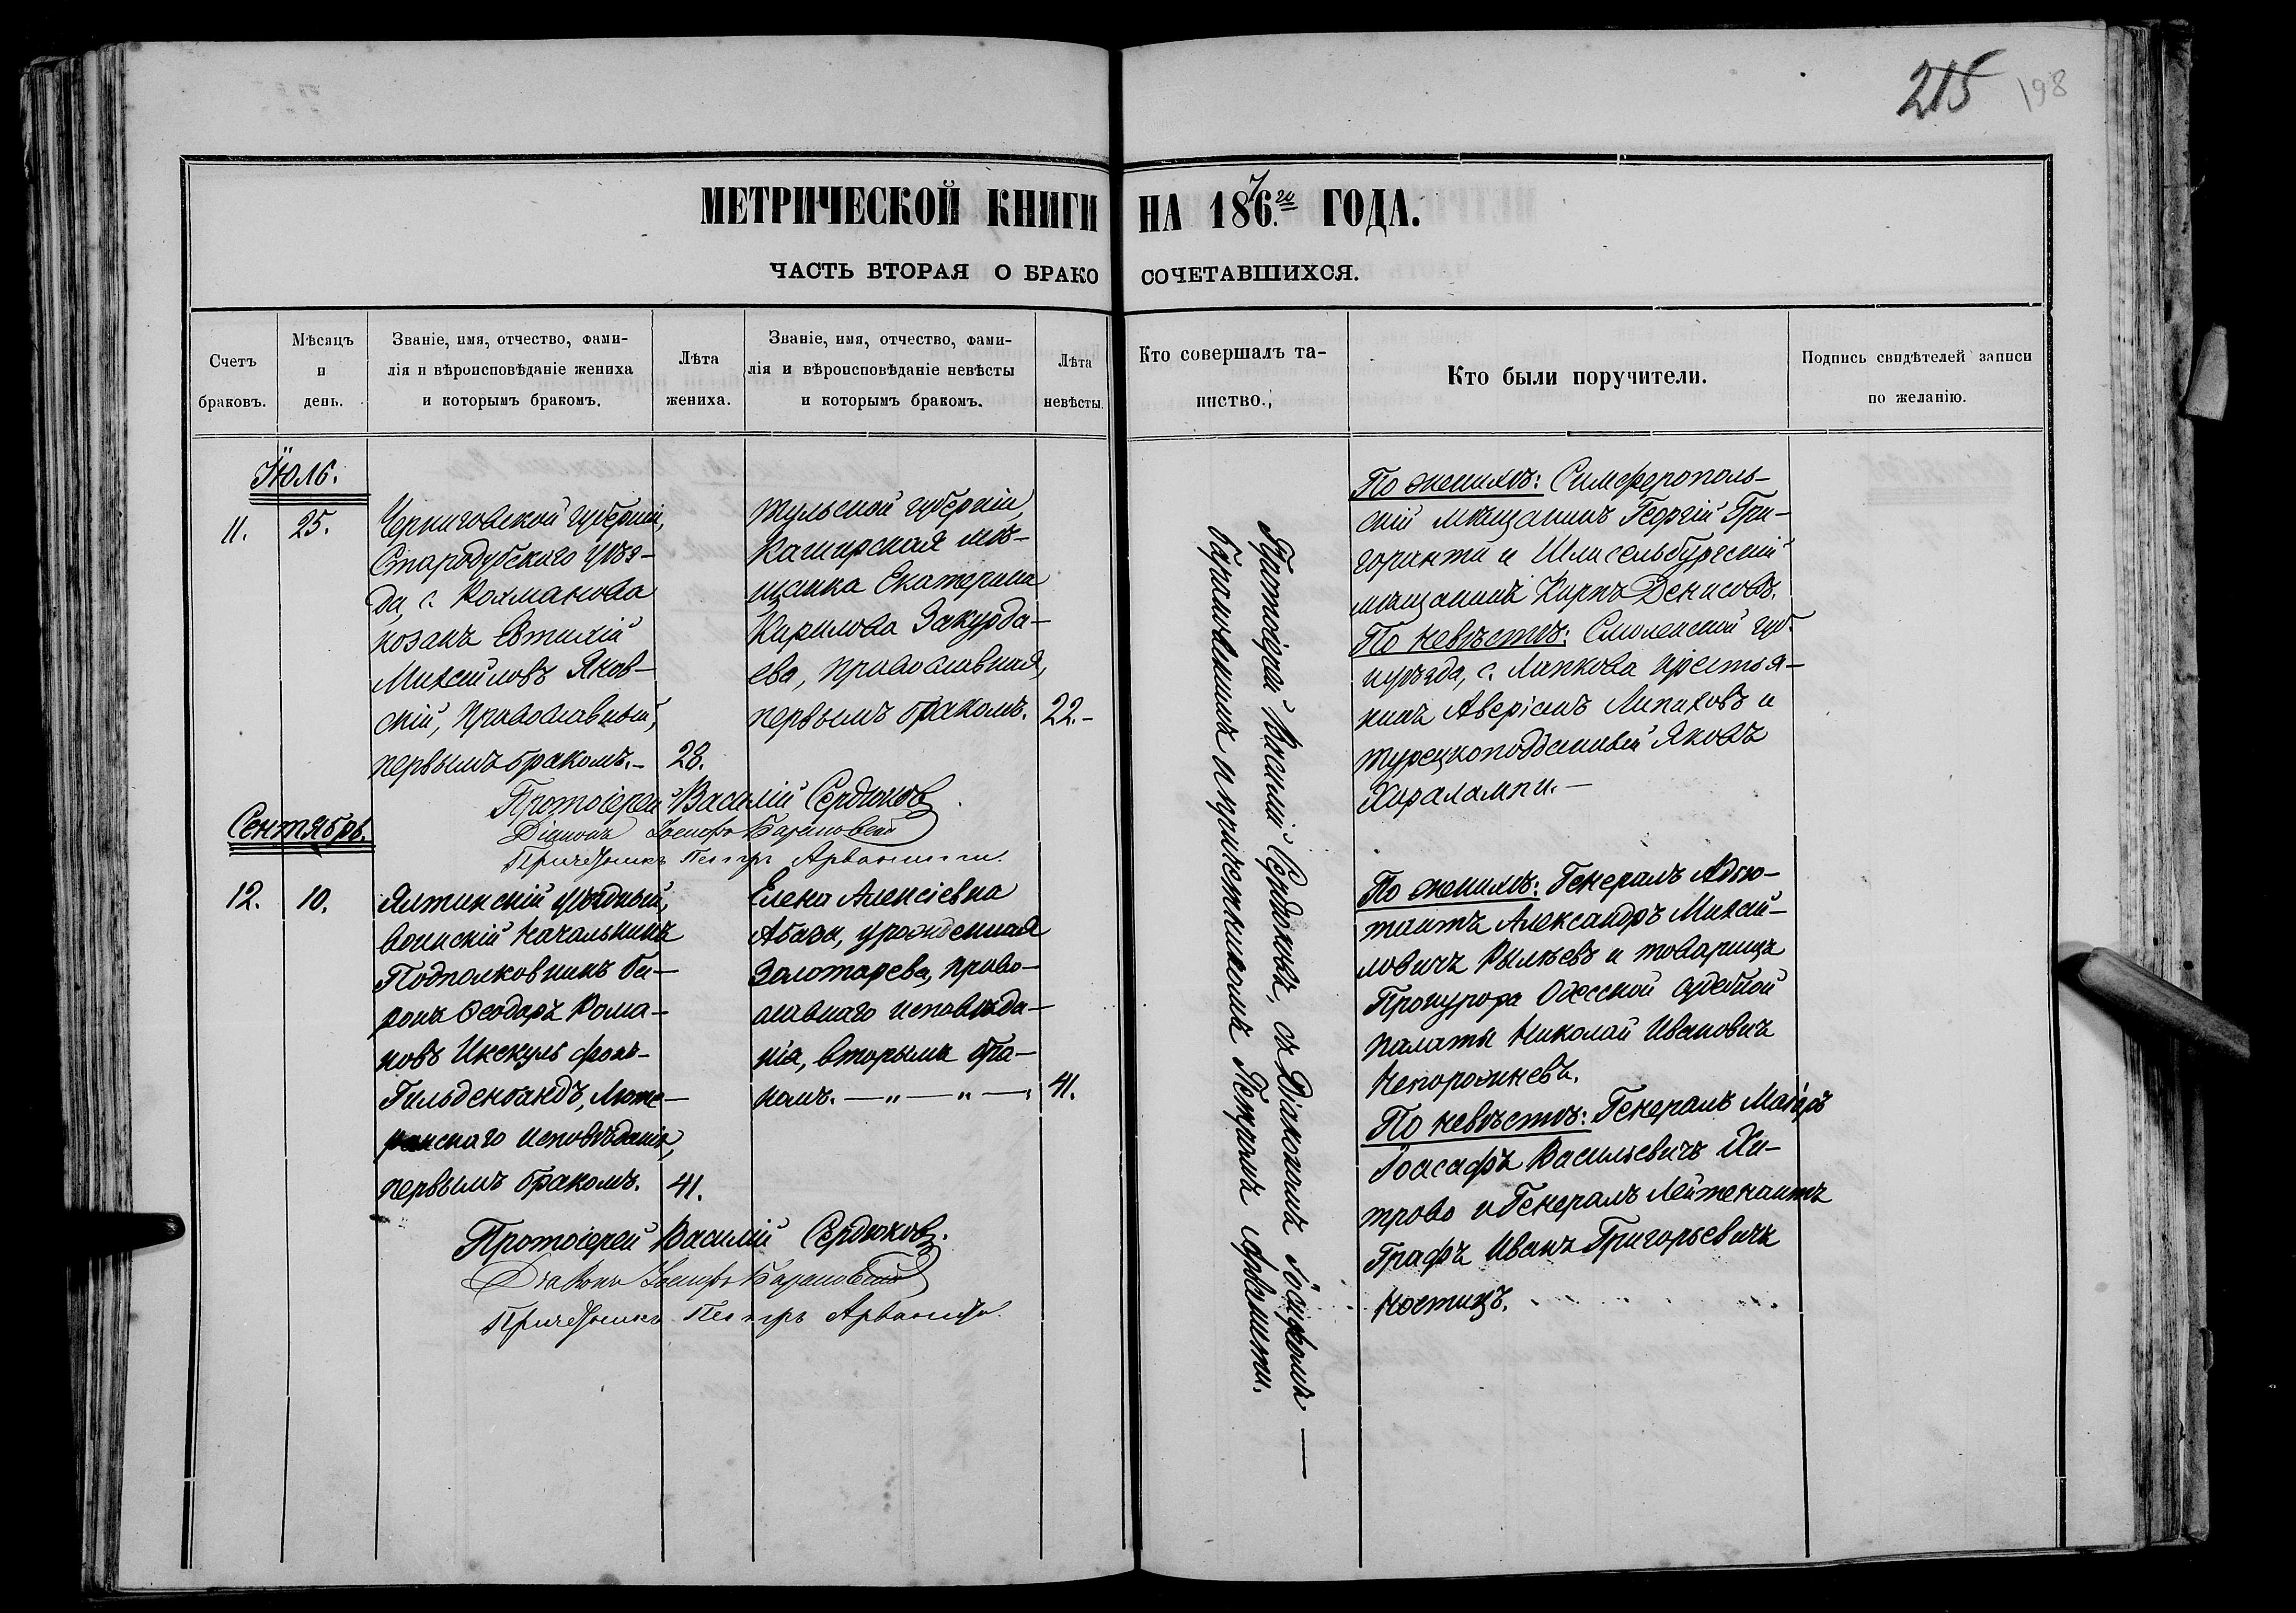 215 198
МЕТРИЧЕСКОЙ КНИГИ НА 1876.го ГОДА.
ЧАСТЬ ВТОРАЯ О БРАКОСОЧЕТАВШИХСЯ.
Счетъ
браковъ.
Мѣсяцъ
и
день.
Званіе, имя, отчество, фами-
лія и вѣроисповѣданіе жениха
и которымъ бракомъ.
Лѣта
жениха.
Званіе, имя, отчество, фами-
лія и вѣроисповѣданіе невѣсты
и которымъ бракомъ.
Лѣта
невѣсты.
Кто совершалъ та-
инство.
Кто были поручители.
Подпись свидѣтелей записи
по желанію.
Іюль.
11. 25.
Черниговской губерніи,
Стародубскаго уѣз-
да, с.
козакъ Евтихій
Михайловъ Янов-
скій, православный,
первымъ бракомъ.-
28.
Тульской губерніи,
Каширская мѣ-
щанка Екатерина
Кирилова Закурда-
ева, православная,
первымъ бракомъ.
22.-
Протоіерей Василій Сердюковъ
Діаконъ Іосифъ Барановскій
Причетникъ Петръ
По женихѣ: Симферополь-
скій мѣщанинъ Георгій Гри-
горианти и Шлисельбургскій
мѣщанинъ Карпъ Денисовъ.
По невѣстѣ: Смоленской губ.
и уѣзда, с. Лапкова крестья-
нинъ Аверіанъ Липаховъ и
турецкоподданный Яковъ
Харалампи.-
Протоіерей Василій Сердюковъ, съ Діакономъ Іосифомъ —
Барановскимъ и причетникомъ Петромъ
Сентябрь.
12. 10.
Ялтинскій уѣздный,
воинскій начальникъ
Подполковникъ Ба-
ронъ Ѳеодоръ Рома-
новъ Икскуль фонъ-
Гильденбандъ, Люте-
ранскаго исповѣданія,
первымъ бракомъ.
41.
Елена Алексіевна
Абаза, урожденная
Золотарева, право-
славнаго исповѣда-
нія, вторымъ бра-
комъ. — " — " —
41.
Протоіерей Василій Сердюковъ.
Діаконъ Іосифъ Барановскій
Причетникъ Петръ
По женихѣ: Генералъ Адъю-
тантъ Александръ Михай-
ловичъ Рылѣевъ и товарищъ
Прокурора Одесской судебной
палаты Николай Ивановичъ
Непорожневъ.
По невѣстѣ: Генералъ Маіоръ
Іоасафъ Васильевичъ Хи-
трово и Генералъ Лейтенантъ
Графъ Иванъ Григорьевичъ
Ностицъ.